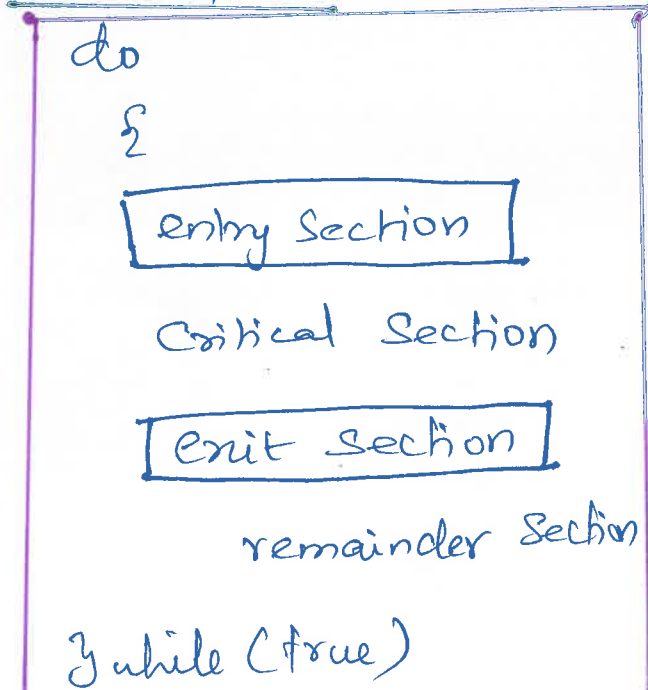 do
{
entry Section
Critical Section
exit section
remainder Section
} while (true)